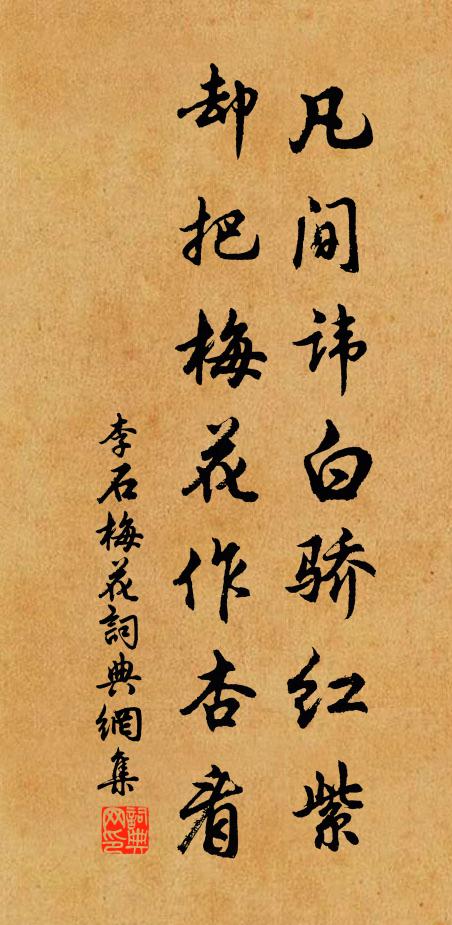 凡间讳白骄红紫
却把梅花作杏看
李石梅花詞典網集
詞典网印